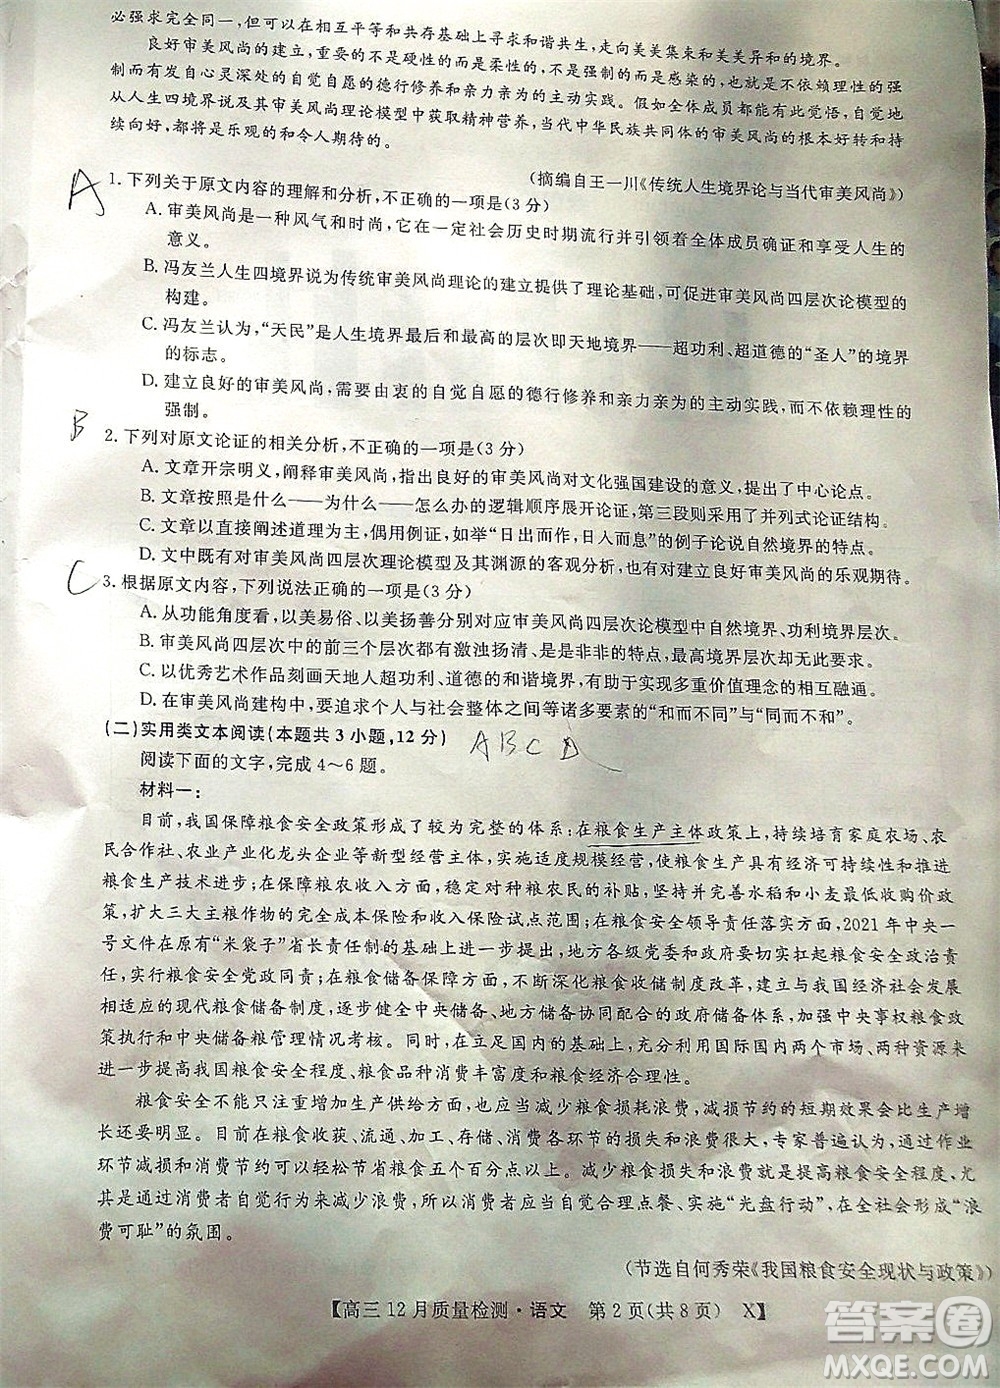 必强求完全同一,但可以在相互平等和共存基础上寻求和谐共生,走向美美集束和美美异和的境界。
良好审美风尚的建立,重要的不是硬性的,而是柔性的,不是强制的而是感染的,是不依赖理性的强
制而有发自心灵深处的自觉自愿的德行修养和亲力亲为的主动实践。假如全体成员都能有此觉悟,自觉地
从人生四境界说及其审美风尚理论模型中获取精神营养,当代中华民族共同体的审美风尚的根本好转和持
续向好,都将是乐观的和令人期待的。
(摘编自王一川《传统人生境界论与当代审美风尚》)
A
1. 下列关于原文内容的理解和分析,不正确的一项是(3分)
A. 审美风尚是一种风气和时尚,它在一定社会历史时期流行并引领着全体成员确证和享受人生的
意义。
B. 冯友兰人生四境界说为传统审美风尚理论的建立提供了理论基础,可促进审美风尚四层次论模型的
构建。
C. 冯友兰认为,“天民”是人生境界最后和最高的层次即天地境界——超功利、超道德的“圣人”的境界
的标志。
D. 建立良好的审美风尚,需要由衷的自觉自愿的德行修养和亲力亲为的主动实践,而不依赖理性的
强制。
B
2. 下列对原文论证的相关分析,不正确的一项是(3分)
A. 文章开宗明义,阐释审美风尚,指出良好的审美风尚对文化强国建设的意义,提出了中心论点。
B. 文章按照是什么——为什么——怎么办的逻辑顺序展开论证,第三段则采用了并列式论证结构。
C. 文章以直接阐述道理为主,偶用例证,如举“日出而作,日人而息”的例子论说自然境界的审美风尚。
D. 文中既有对审美风尚四层次理论模型及其渊源的客观分析,也有对建立良好审美风尚的乐观期待。
C
3. 根据原文内容,下列说法正确的一项是(3分)
A. 从功能角度看,以美易俗、以美扬善分别对应审美风尚四层论模型中自然境界、功利境界层次。
B. 审美风尚四层次中的前三个层次都有激浊扬清、是是非非的特点,最高境界层次则无此特点。
C. 以优秀艺术作品刻画天地人超功利、道德的和谐美景,有助于实现多重价值理念的相互融通。
D. 在审美风尚建构中,要追求个人与社会整体之间等诸多要素的“和而不同”与“同而不和”。
(二)实用类文本阅读(本题共3小题,12分)
A B C D
阅读下面的文字,完成4~6题。
材料一:
目前,我国保障粮食安全政策形成了较为完整的体系:在粮食生产主体政策上,持续培育家庭农场、农
民合作社、农业产业化龙头企业等新型经营主体,实施适度规模经营,使粮食生产具有经济可持续性和推进
粮食生产技术进步;在保障粮农收入和种粮积极性上,稳定对种粮农民的补贴,坚持并完善水稻和小麦最低收购价政
策,扩大三大主粮作物的完全成本保险和收入保险试点范围;在粮食安全领导责任落实方面,2021年中央一
号文件在原有“米袋子”省长责任制的基础上进一步提出,地方各级党委和政府要切实扛起粮食安全政治责
任,实行粮食安全党政同责;在粮食储备保障方面,不断深化粮食收储制度改革,建立与我国经济社会发展
相适应的现代粮食储备制度,逐步健全中央储备、地方储备协同配合的政府储备体系,加强中央事权粮食政
策执行和中央储备粮管理情况考核。同时,在立足国内的基础上,充分利用国际国内两个市场、两种资源来
进一步提高我国粮食安全程度、粮食品种消费丰富度和粮食经济合理性。
粮食安全不能只注重增加生产供给方面,也应当减少粮食损耗浪费,减损节约的短期效果会比生产增
长还要明显。目前在粮食收获、流通、加工、存储、消费各环节的损失和浪费很大,专家普遍认为,通过作业
环节减损和消费节约可以轻松节省粮食五个百分点以上。减少粮食损失和浪费就是提高粮食安全程度,尤
其是通过消费者自觉行动来减少浪费。所以,提倡消费者自觉合理点餐、实施“光盘行动”,在全社会形成“浪
费可耻”的氛围。
(节选自何秀荣《我国粮食安全现状与政策》)
【高三12月质量检测·语文 第2页(共8页) X】
答案圈
MXQE.COM